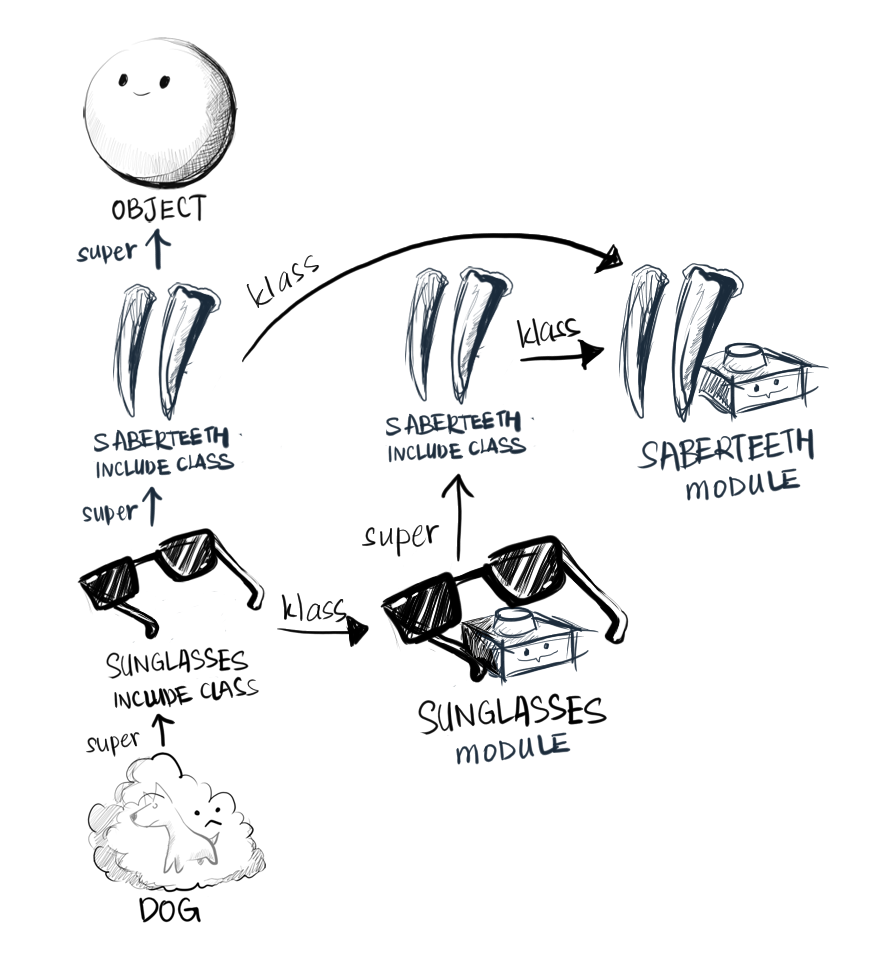 OBJECT
super
klass
klass
SABERTEETH
INCLUDE CLASS
SABERTEETH
INCLUDE CLASS
SABERTEETH
MODULE
super
super
klass
SUNGLASSES
INCLUDE CLASS
SUNGLASSES
MODULE
super
DOG